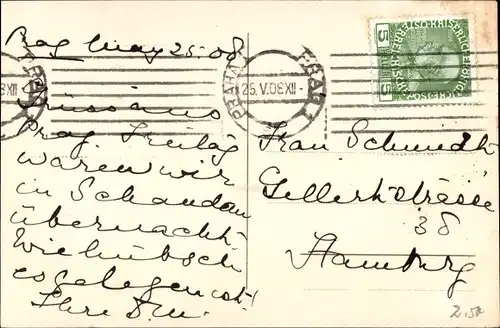 Prag May 25. 08
Gruss aus
Prag. Freitag
waren wir
in Schandau
übernacht.
Wie hübsch
es gelegen ist!
Ihre
Frau Schmidt
Gellertstrasse
38
Hamburg
PRAHA PRAG 1
25. V. 08 XII -
5 5
2.50